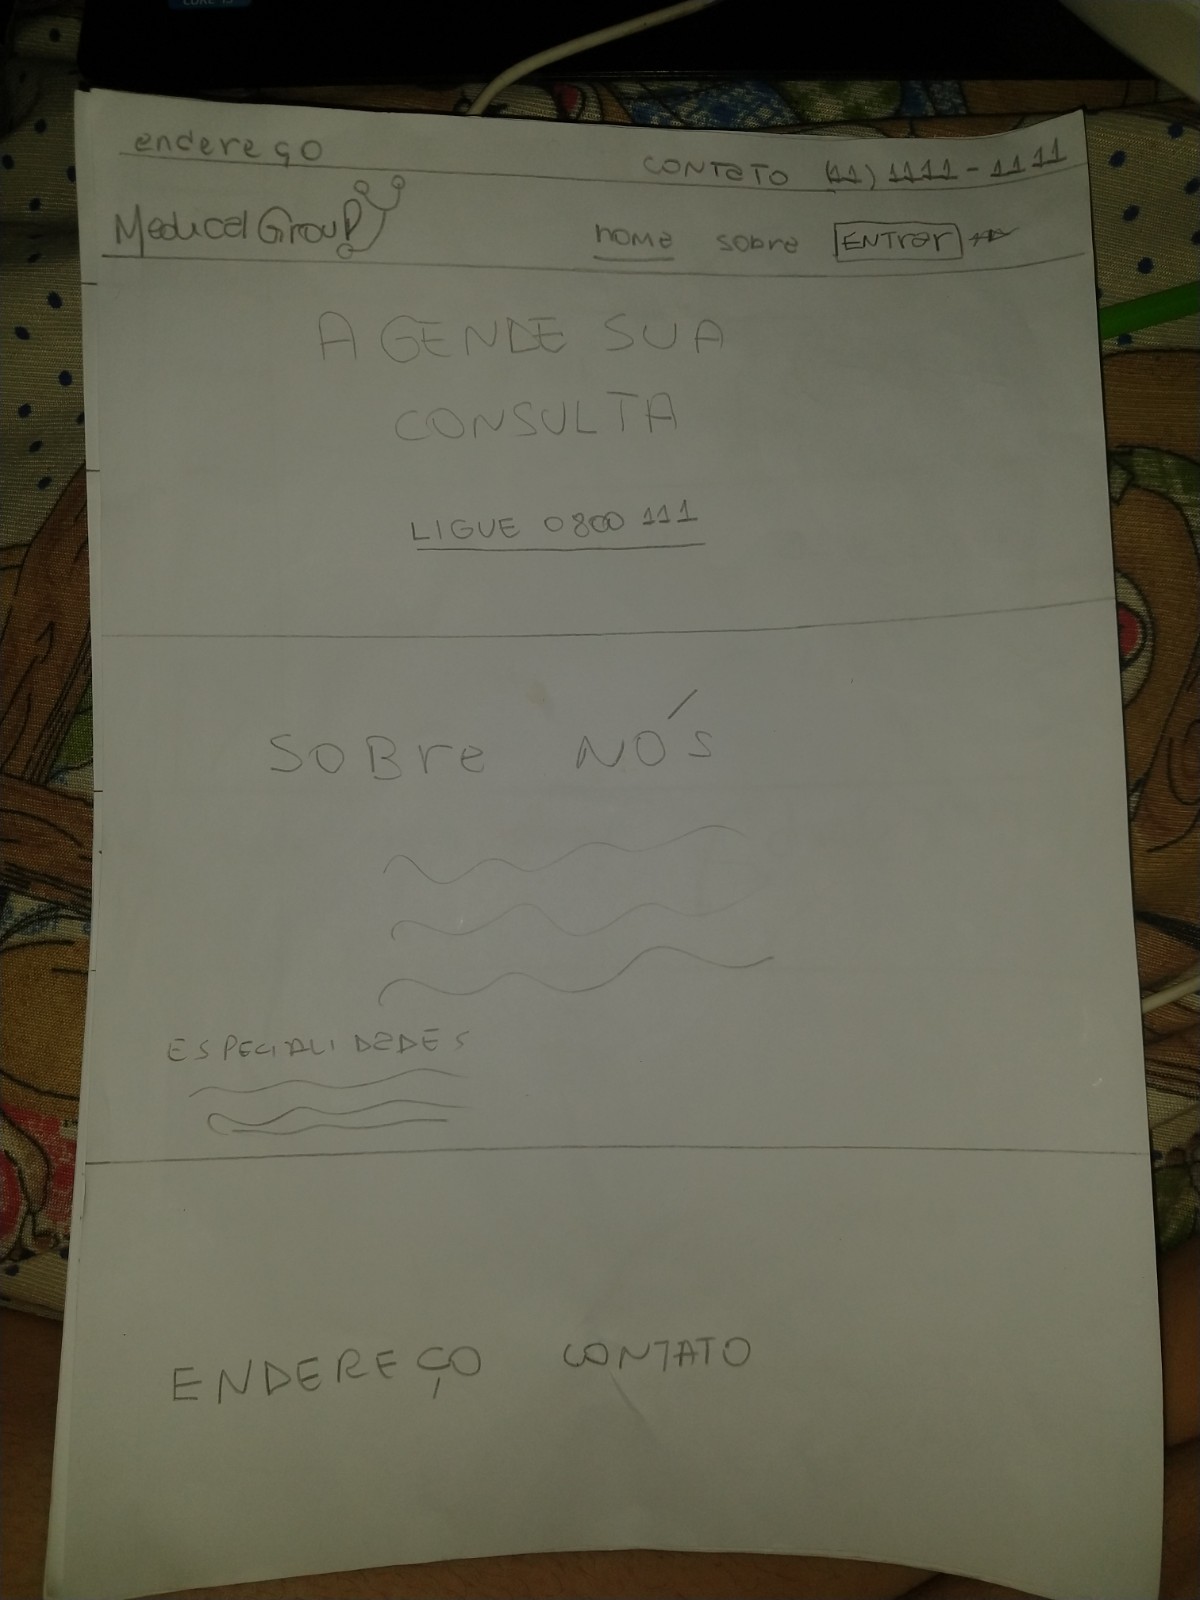 endereço
CONTATO (11) 1111-1111
Medical Group
home sobre ENTrar
AGENDE SUA
CONSULTA
LIGUE 0800 111
SOBre NÓS
ESPECIALIDADES
ENDEREÇO CONTATO